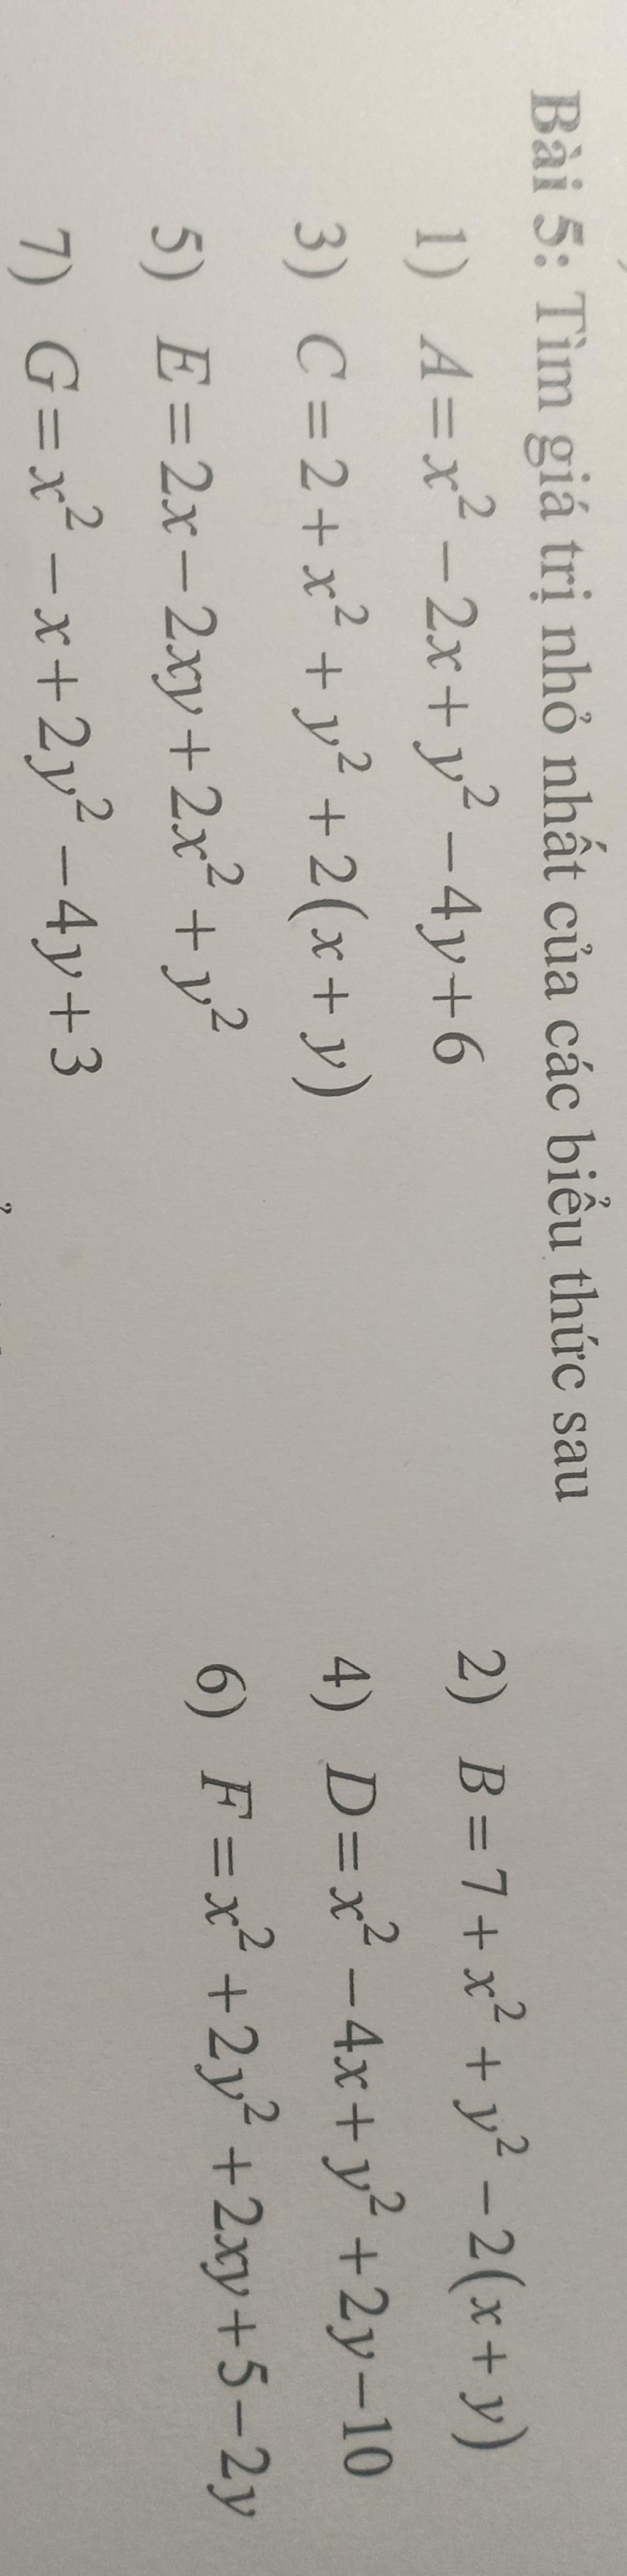 Bài 5: Tìm giá trị nhỏ nhất của các biểu thức sau
1) A = x² − 2x + y² − 4y + 6 2) B = 7 + x² + y² − 2(x + y)
3) C = 2 + x² + y² + 2(x + y) 4) D = x² − 4x + y² + 2y − 10
5) E = 2x − 2xy + 2x² + y² 6) F = x² + 2y² + 2xy + 5 − 2y
7) G = x² − x + 2y² − 4y + 3